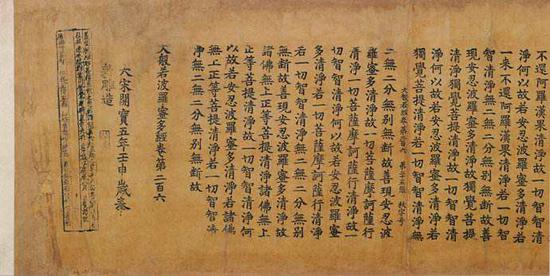 不還阿羅漢果清淨故一切智智清
淨何以故若安忍波羅蜜多清淨若
一來不還阿羅漢果清淨若一切智
智清淨無二無二分無別無斷故善
現安忍波羅蜜多清淨故獨覺菩提
清淨獨覺菩提清淨故一切智智清
淨何以故若安忍波羅蜜多清淨若
獨覺菩提清淨若一切智智清淨無
大般若經卷第二百六 第十五張 秋字号
二無二分無別無斷故善現安忍波
羅蜜多清淨故一切菩薩摩訶薩行
清淨一切菩薩摩訶薩行清淨故一
切智智清淨何以故若安忍波羅蜜
多清淨若一切菩薩摩訶薩行清淨
若一切智智清淨無二無二分無別
無斷故善現安忍波羅蜜多清淨故
諸佛無上正等菩提清淨諸佛無上
正等菩提清淨故一切智智清淨何
以故若安忍波羅蜜多清淨若諸佛
無上正等菩提清淨若一切智智清
淨無二無二分無別無斷故
大般若波羅蜜多經卷第二百六
大宋開寶五年壬申歲奉
勑雕造